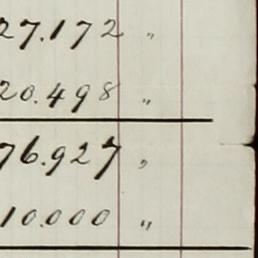 27.172 "
20.498 "
76.927 "
10.000 "